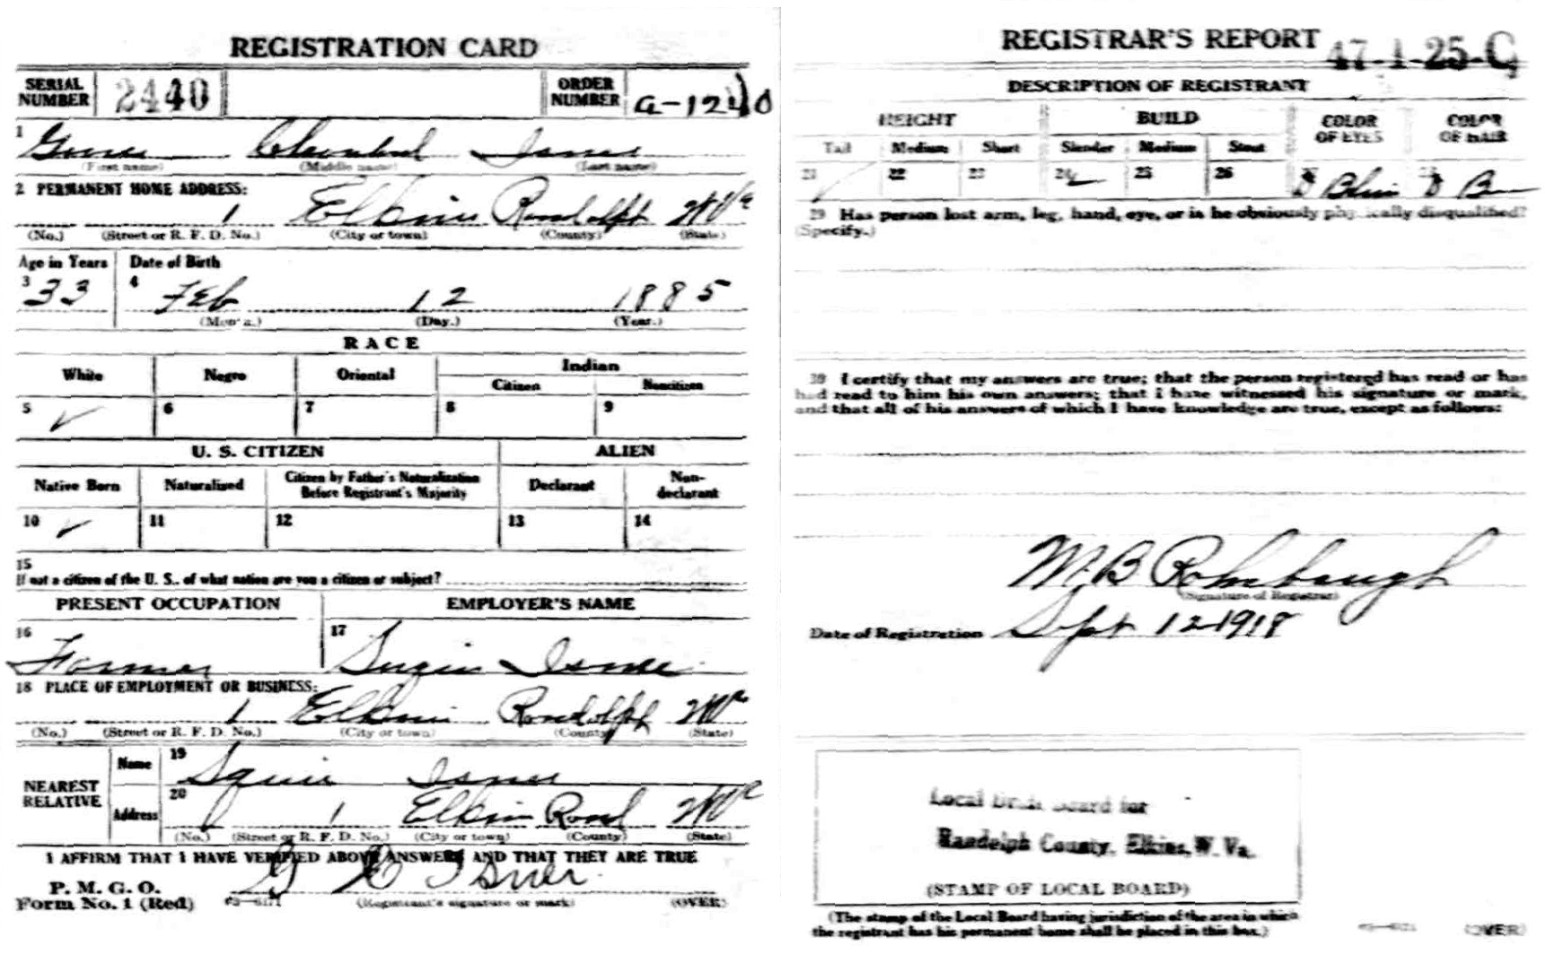 REGISTRATION CARD
SERIAL NUMBER 2440 ORDER NUMBER a-1240
1 Isner
(First name) (Middle name) (Last name)
2 PERMANENT HOME ADDRESS:
1 Elkins Randolph WVa
(No.) (Street or R. F. D. No.) (City or town) (County) (State)
Age in Years Date of Birth
3 33 4 Feb 12 1885
(Month.) (Day.) (Year.)
RACE
White Negro Oriental Indian
Citizen Noncitizen
5 ✓ 6 7 8 9
U. S. CITIZEN ALIEN
Native Born Naturalized Citizen by Father's Naturalization Before Registrant's Majority Declarant Non-declarant
10 ✓ 11 12 13 14
15
If not a citizen of the U. S., of what nation are you a citizen or subject?
PRESENT OCCUPATION EMPLOYER'S NAME
16 Farmer 17 Isner
18 PLACE OF EMPLOYMENT OR BUSINESS:
1 Elkins Randolph WVa
(No.) (Street or R. F. D. No.) (City or town) (County) (State)
NEAREST RELATIVE
Name 19 Squire Isner
Address 20 1 Elkins Rand WVa
(No.) (Street or R. F. D. No.) (City or town) (County) (State)
I AFFIRM THAT I HAVE VERIFIED ABOVE ANSWERS AND THAT THEY ARE TRUE
P. M. G. O.
Form No. 1 (Red) G C Isner
(Registrant's signature or mark) (OVER)
REGISTRAR'S REPORT 47-1-25-C
DESCRIPTION OF REGISTRANT
HEIGHT BUILD COLOR OF EYES COLOR OF HAIR
Tall Medium Short Slender Medium Stout
21 ✓ 22 23 24 ✓ 25 26 Blue
29 Has person lost arm, leg, hand, eye, or is he obviously physically disqualified?
(Specify.)
30 I certify that my answers are true; that the person registered has read or has
had read to him his own answers; that I have witnessed his signature or mark,
and that all of his answers of which I have knowledge are true, except as follows:
M. B. Rohrbaugh
(Signature of Registrar)
Date of Registration Sept 12 1918
Local Draft Board for
Randolph County, Elkins, W. Va.
(STAMP OF LOCAL BOARD)
(The stamp of the Local Board having jurisdiction of the area in which
the registrant has his permanent home shall be placed in this box.)
(OVER)